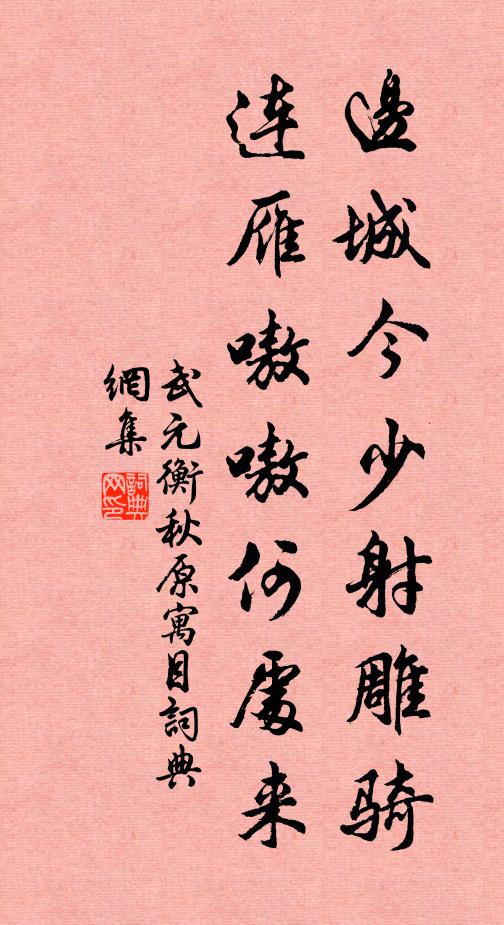 邊城今少射雕騎
連雁嗷嗷何處来
武元衡秋原寓目詞典
網集
詞典
网印